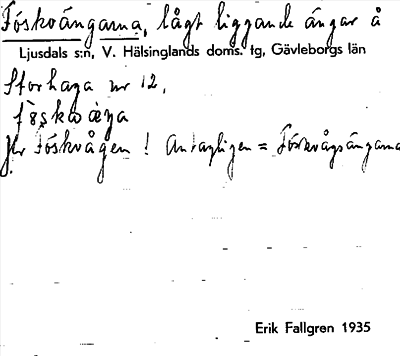 Föskvängarna, lågt liggande ängar å
Ljusdals s:n, V. Hälsinglands doms. tg, Gävleborgs län
Storhaga nr 12.
Jfr Föskvågen! Antagligen = Föskvågsängarna
Erik Fallgren 1935